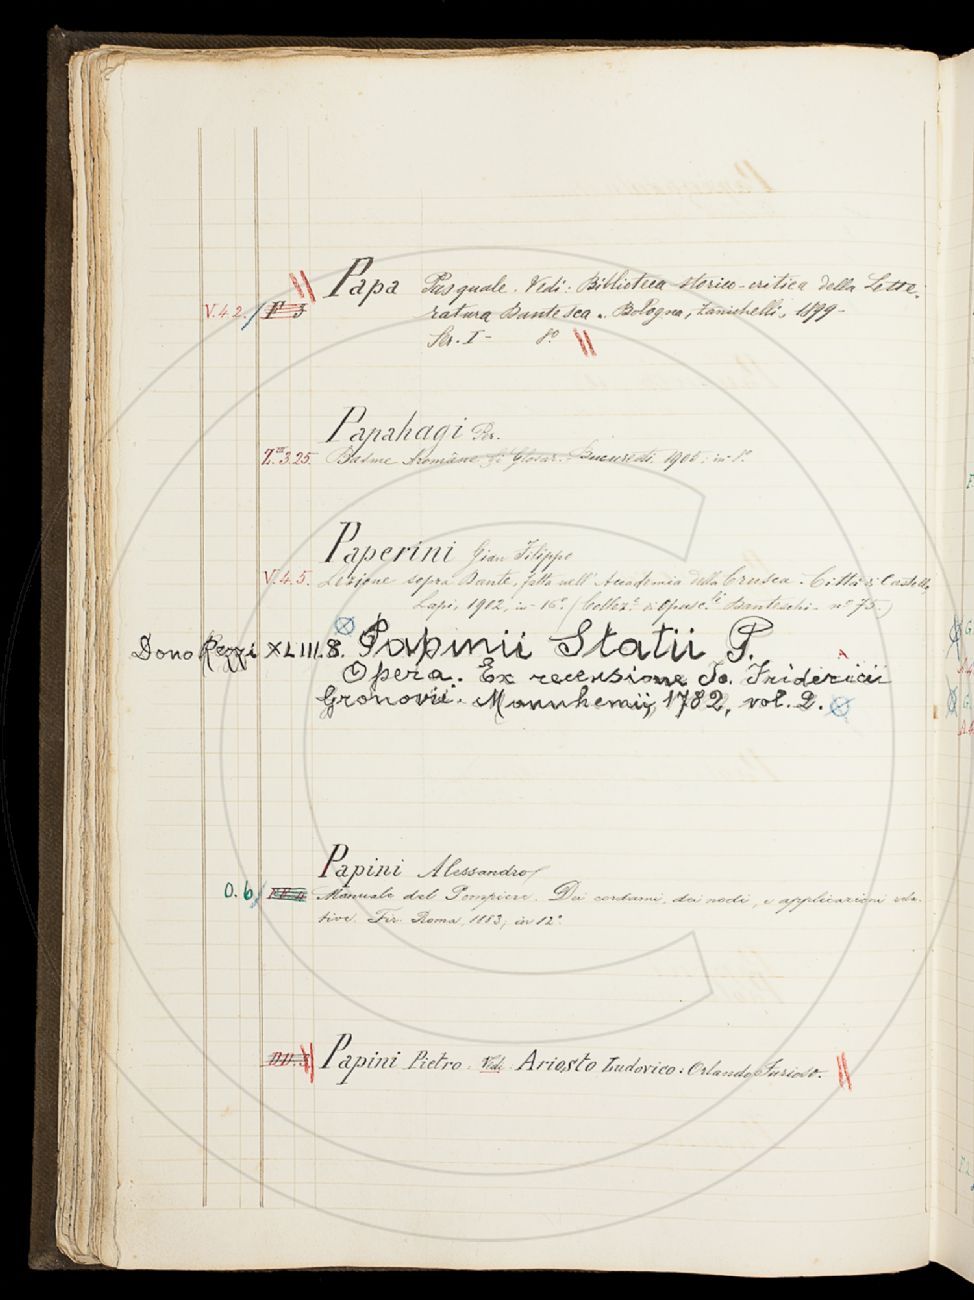 Papa Pasquale. Vedi: Biblioteca storico-critica della Lette-
V.4.2. F 3 ratura Dantesca. Bologna, Zanichelli, 1899-
Ser. I- 8º
Papahagi Per.
Z.III.3.25. Basme Aromâne și Glosar. Bucuresti. 1905; in-8º.
Paperini Gian Filippo
V.4.5. Lezione sopra Dante, fatta nell'Accademia della Crusca. Città di Castello,
Lapi, 1902, in-16º. (Collez.e di Opusc.li Danteschi. nº 75.)
Dono Rezzi XLIII.8. Papinii Statii P.
Opera. Ex recensione Jo. Friderici
Gronovii. Mannhemii, 1782, vol. 2.
Papini Alessandro
O.6 Manuale del Pompiere. Dei cordami, dei nodi, e applicazioni rela-
tive. Roma, 1883; in 12º.
Papini Pietro. Vedi Ariosto Ludovico: Orlando Furioso.